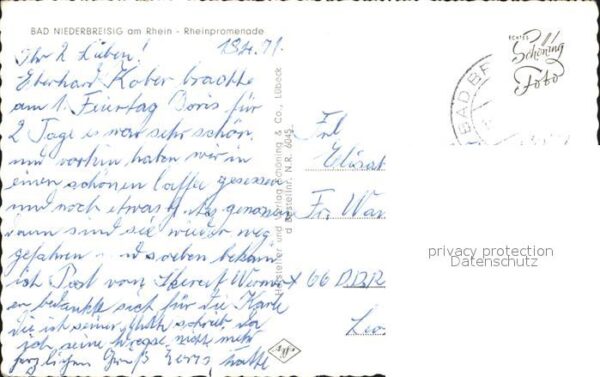 BAD NIEDERBREISIG am Rhein - Rheinpromenade
18.4.71.
Ihr 2 Lieben!
Eberhard Kober brachte
am 1. Feiertag Boris für
2 Tage es war sehr schön.
und vorhin haben wir in
einen schönen Caffe gesessen
und noch etwas genossen
dann sind sie wieder weg
gefahren und soeben bekam
ich Post von Werner
er bedankte sich für die Karte
die ich seiner schrieb, da
ich seine nicht mehr
herzlichen Gruß hatte
Hersteller und Verlag Schöning & Co., Lübeck
Bestellnr. N.R. 6045
ECHTES
Schöning
Foto
BAD BR
Frl
Elisab
Fr. War
66 DDR
privacy protection
Datenschutz